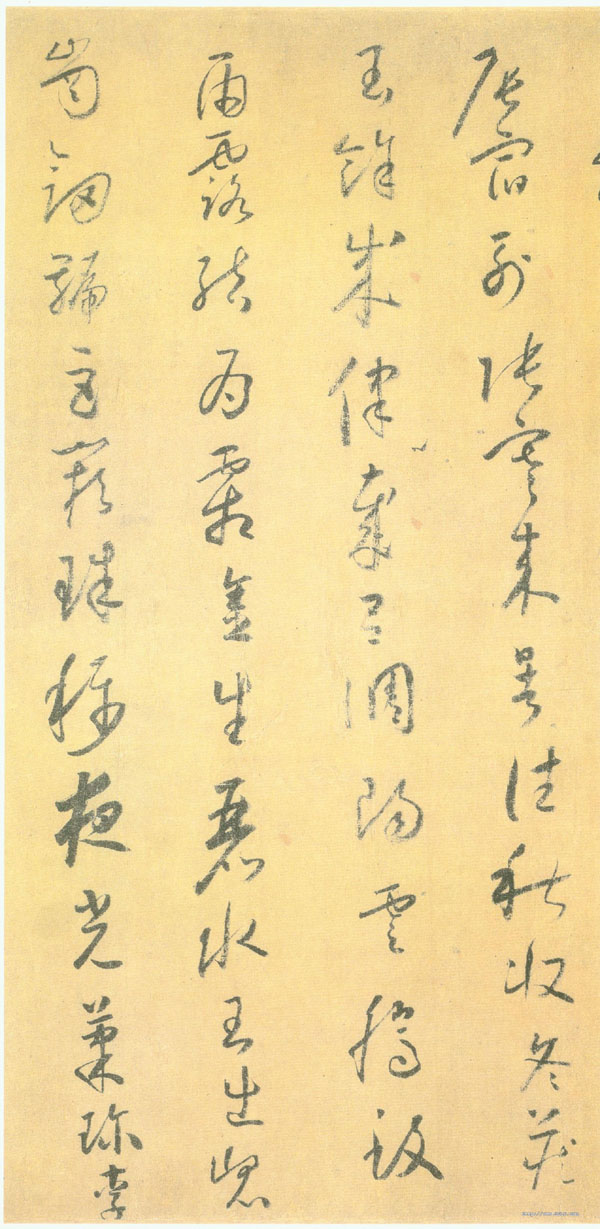 辰宿列張寒来暑往秋收冬藏
閏餘成律歲吕調陽雲騰致
雨露結為霜金生麗水玉出崑
崗劒號巨闕珠稱夜光菓珍李